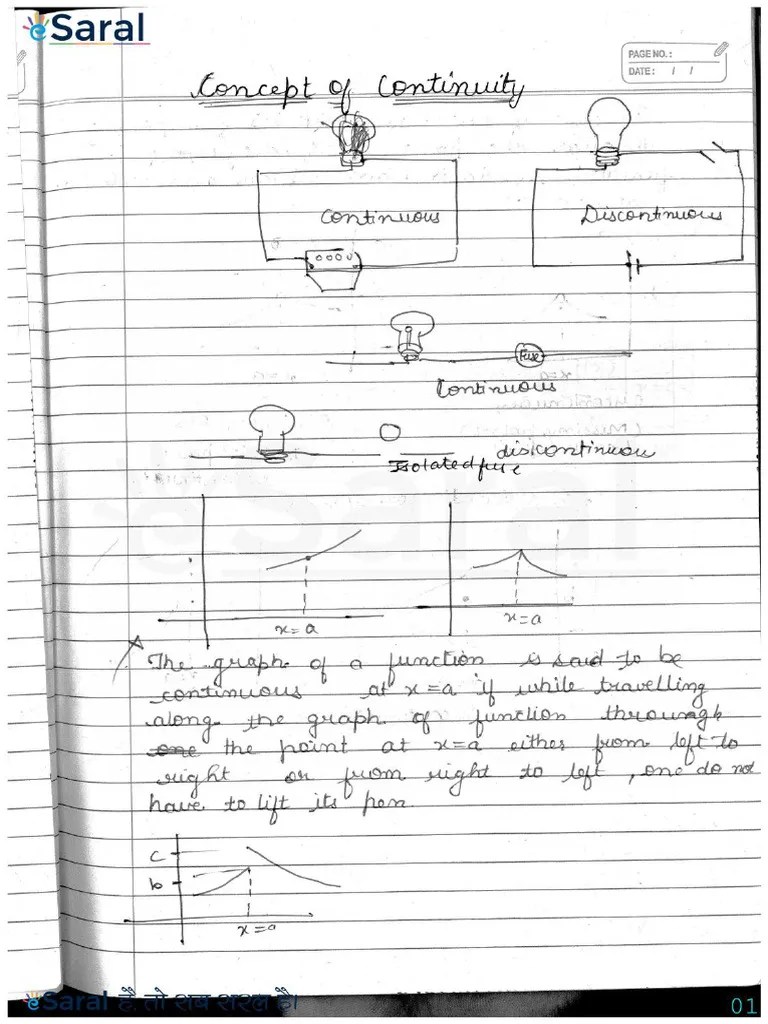 eSaral
PAGE NO.:
DATE: / /
Concept of Continuity
Continuous
Discontinuous
Fuse
Continuous
discontinuou
Isolated fuse
x=a
x=a
The graph of a function is said to be
continuous at x=a if while travelling
along the graph of function through
one the point at x=a either from left to
right or from right to left, one do not
have to lift its pen
c
b
x=a
eSaral है, तो सब सरल है।
01